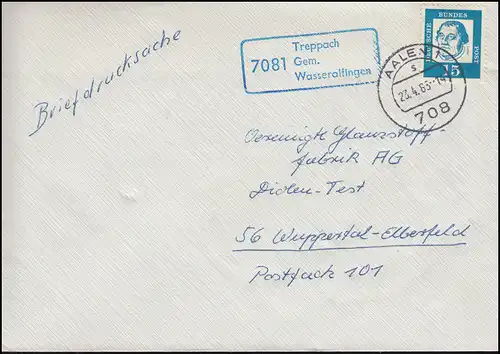 Briefdrucksache
7081
Treppach
Gem.
Wasseralfingen
AALEN 1
s
23.4.63-14
708
DEUTSCHE
BUNDES
POST
15
Vereinigte Glanzstoff-
fabrik AG
Diolen-Test
56 Wuppertal-Elberfeld
Postfach 101